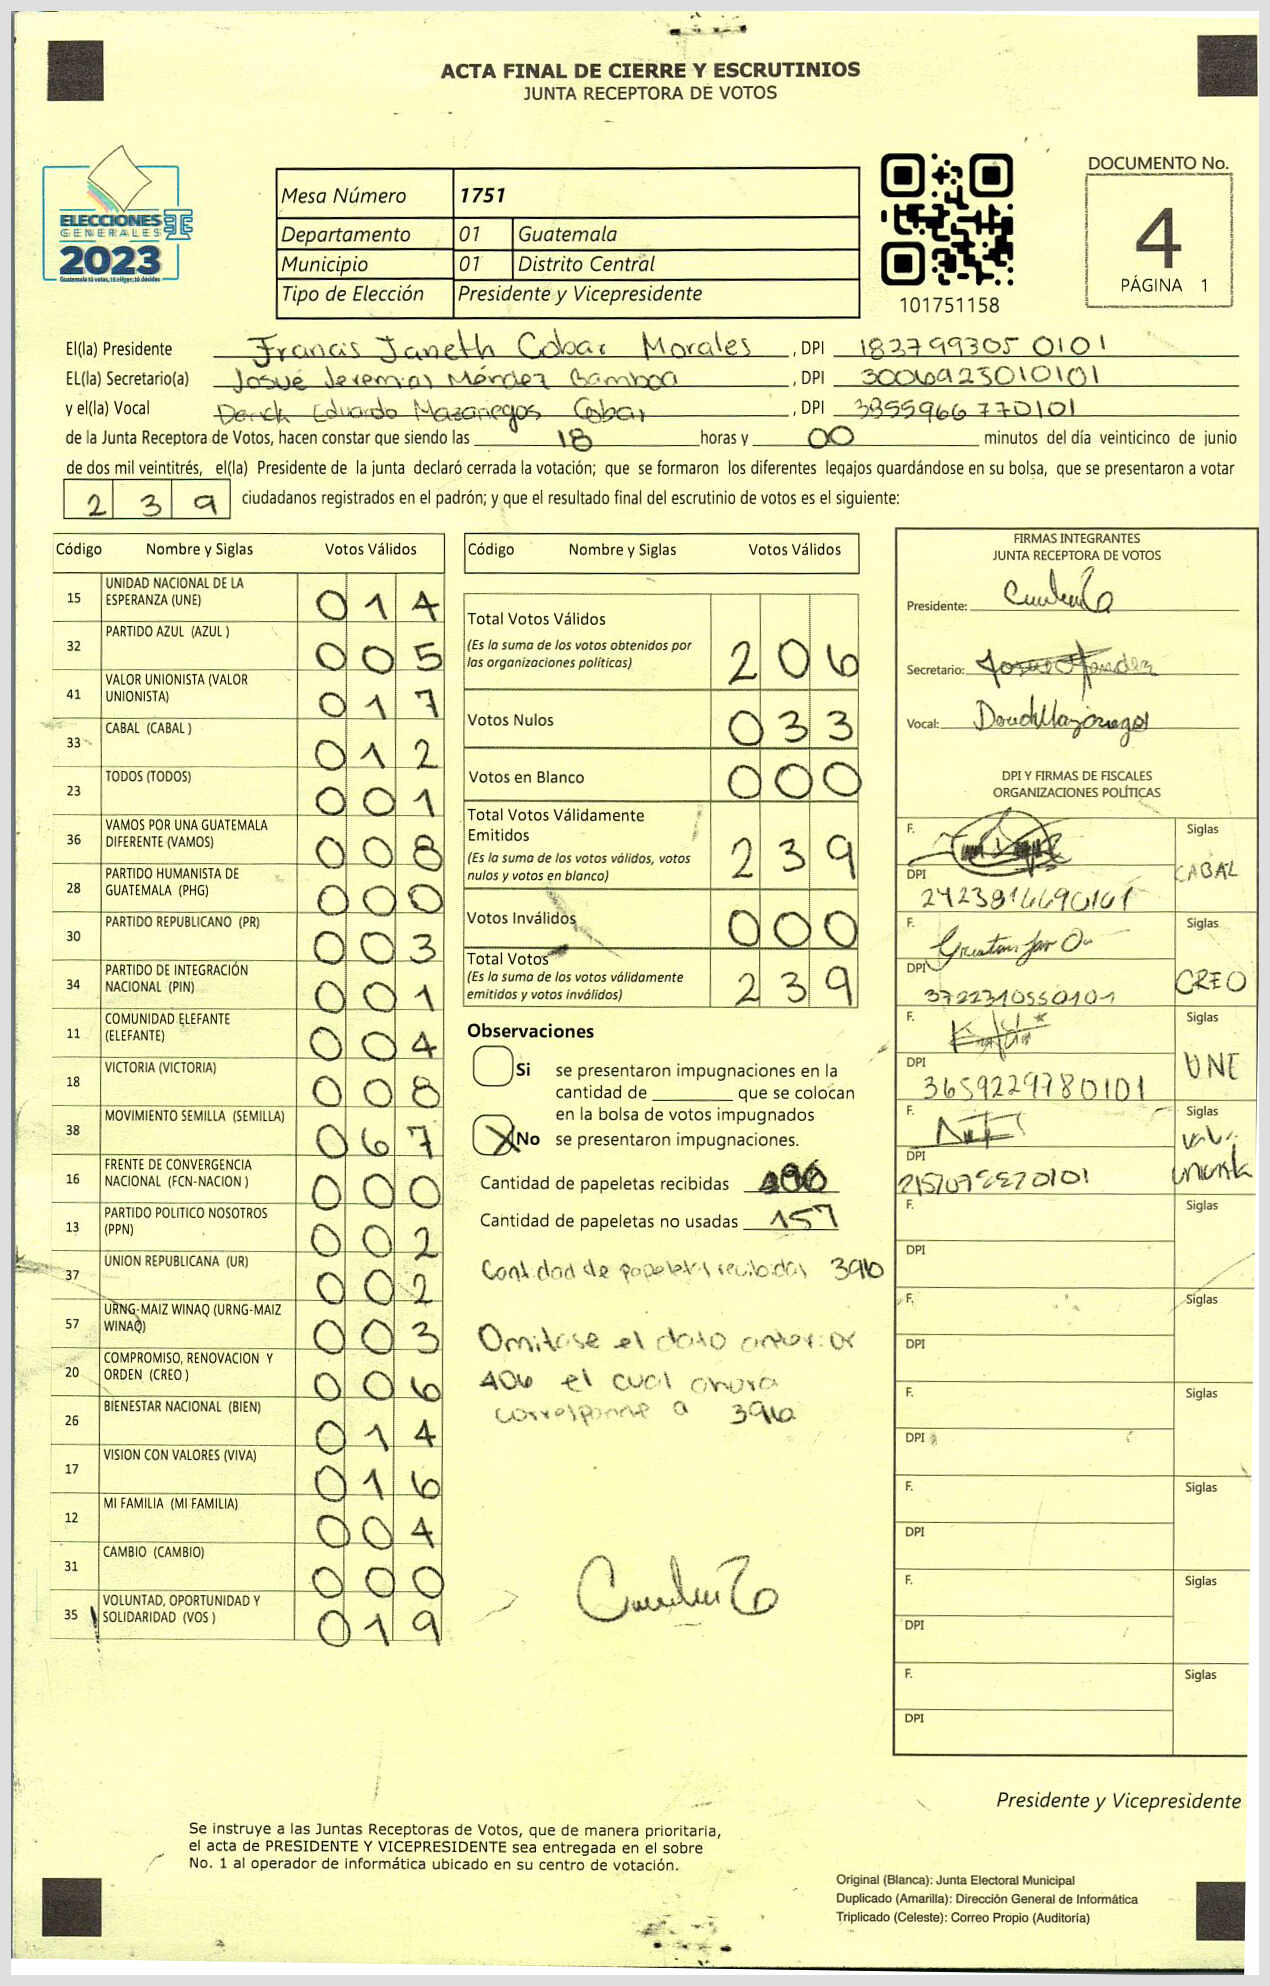 ACTA FINAL DE CIERRE Y ESCRUTINIOS
JUNTA RECEPTORA DE VOTOS
ELECCIONES
GENERALES
2023
Guatemala tú votas, tú eliges, tú decides
Mesa Número 1751
Departamento 01 Guatemala
Municipio 01 Distrito Central
Tipo de Elección Presidente y Vicepresidente
101751158
DOCUMENTO No.
4
PÁGINA 1
El(la) Presidente Francis Janeth Cobar Morales, DPI 183799305 0101
EL(la) Secretario(a) Josué Jeremias Méndez Gamboa, DPI 3006923010101
y el(la) Vocal Derick Eduardo Mazariegos Cobar, DPI 3855966770101
de la Junta Receptora de Votos, hacen constar que siendo las 18 horas y 00 minutos del día veinticinco de junio
de dos mil veintitrés, el(la) Presidente de la junta declaró cerrada la votación; que se formaron los diferentes legajos guardándose en su bolsa, que se presentaron a votar
239 ciudadanos registrados en el padrón; y que el resultado final del escrutinio de votos es el siguiente:
Código Nombre y Siglas Votos Válidos
15 UNIDAD NACIONAL DE LA ESPERANZA (UNE) 014
32 PARTIDO AZUL (AZUL ) 005
41 VALOR UNIONISTA (VALOR UNIONISTA) 017
33 CABAL (CABAL ) 012
23 TODOS (TODOS) 001
36 VAMOS POR UNA GUATEMALA DIFERENTE (VAMOS) 008
28 PARTIDO HUMANISTA DE GUATEMALA (PHG) 000
30 PARTIDO REPUBLICANO (PR) 003
34 PARTIDO DE INTEGRACIÓN NACIONAL (PIN) 001
11 COMUNIDAD ELEFANTE (ELEFANTE) 004
18 VICTORIA (VICTORIA) 008
38 MOVIMIENTO SEMILLA (SEMILLA) 067
16 FRENTE DE CONVERGENCIA NACIONAL (FCN-NACION ) 000
13 PARTIDO POLITICO NOSOTROS (PPN) 002
37 UNION REPUBLICANA (UR) 002
57 URNG-MAIZ WINAQ (URNG-MAIZ WINAQ) 003
20 COMPROMISO, RENOVACION Y ORDEN (CREO ) 006
26 BIENESTAR NACIONAL (BIEN) 014
17 VISION CON VALORES (VIVA) 016
12 MI FAMILIA (MI FAMILIA) 004
31 CAMBIO (CAMBIO) 000
35 VOLUNTAD, OPORTUNIDAD Y SOLIDARIDAD (VOS ) 019
Código Nombre y Siglas Votos Válidos
Total Votos Válidos 206
(Es la suma de los votos obtenidos por
las organizaciones políticas)
Votos Nulos 033
Votos en Blanco 000
Total Votos Válidamente
Emitidos 239
(Es la suma de los votos válidos, votos
nulos y votos en blanco)
Votos Inválidos 000
Total Votos 239
(Es la suma de los votos válidamente
emitidos y votos inválidos)
Observaciones
Si se presentaron impugnaciones en la
cantidad de ________ que se colocan
en la bolsa de votos impugnados
X No se presentaron impugnaciones.
Cantidad de papeletas recibidas
Cantidad de papeletas no usadas 157
Cantidad de papeletas recibidas 396
Omitase el dato anterior
406 el cual ahora
corresponde a 396
FIRMAS INTEGRANTES
JUNTA RECEPTORA DE VOTOS
Presidente:
Secretario:
Vocal:
DPI Y FIRMAS DE FISCALES
ORGANIZACIONES POLÍTICAS
F. Siglas
DPI CABAL
F. Siglas
DPI CREO
3722310550101
F. Siglas
DPI UNE
3659229780101
F. Siglas
DPI Valor
unionista
F. Siglas
DPI
F. Siglas
DPI
F. Siglas
DPI
F. Siglas
DPI
F. Siglas
DPI
F. Siglas
DPI
Presidente y Vicepresidente
Se instruye a las Juntas Receptoras de Votos, que de manera prioritaria,
el acta de PRESIDENTE Y VICEPRESIDENTE sea entregada en el sobre
No. 1 al operador de informática ubicado en su centro de votación.
Original (Blanca): Junta Electoral Municipal
Duplicado (Amarilla): Dirección General de Informática
Triplicado (Celeste): Correo Propio (Auditoría)